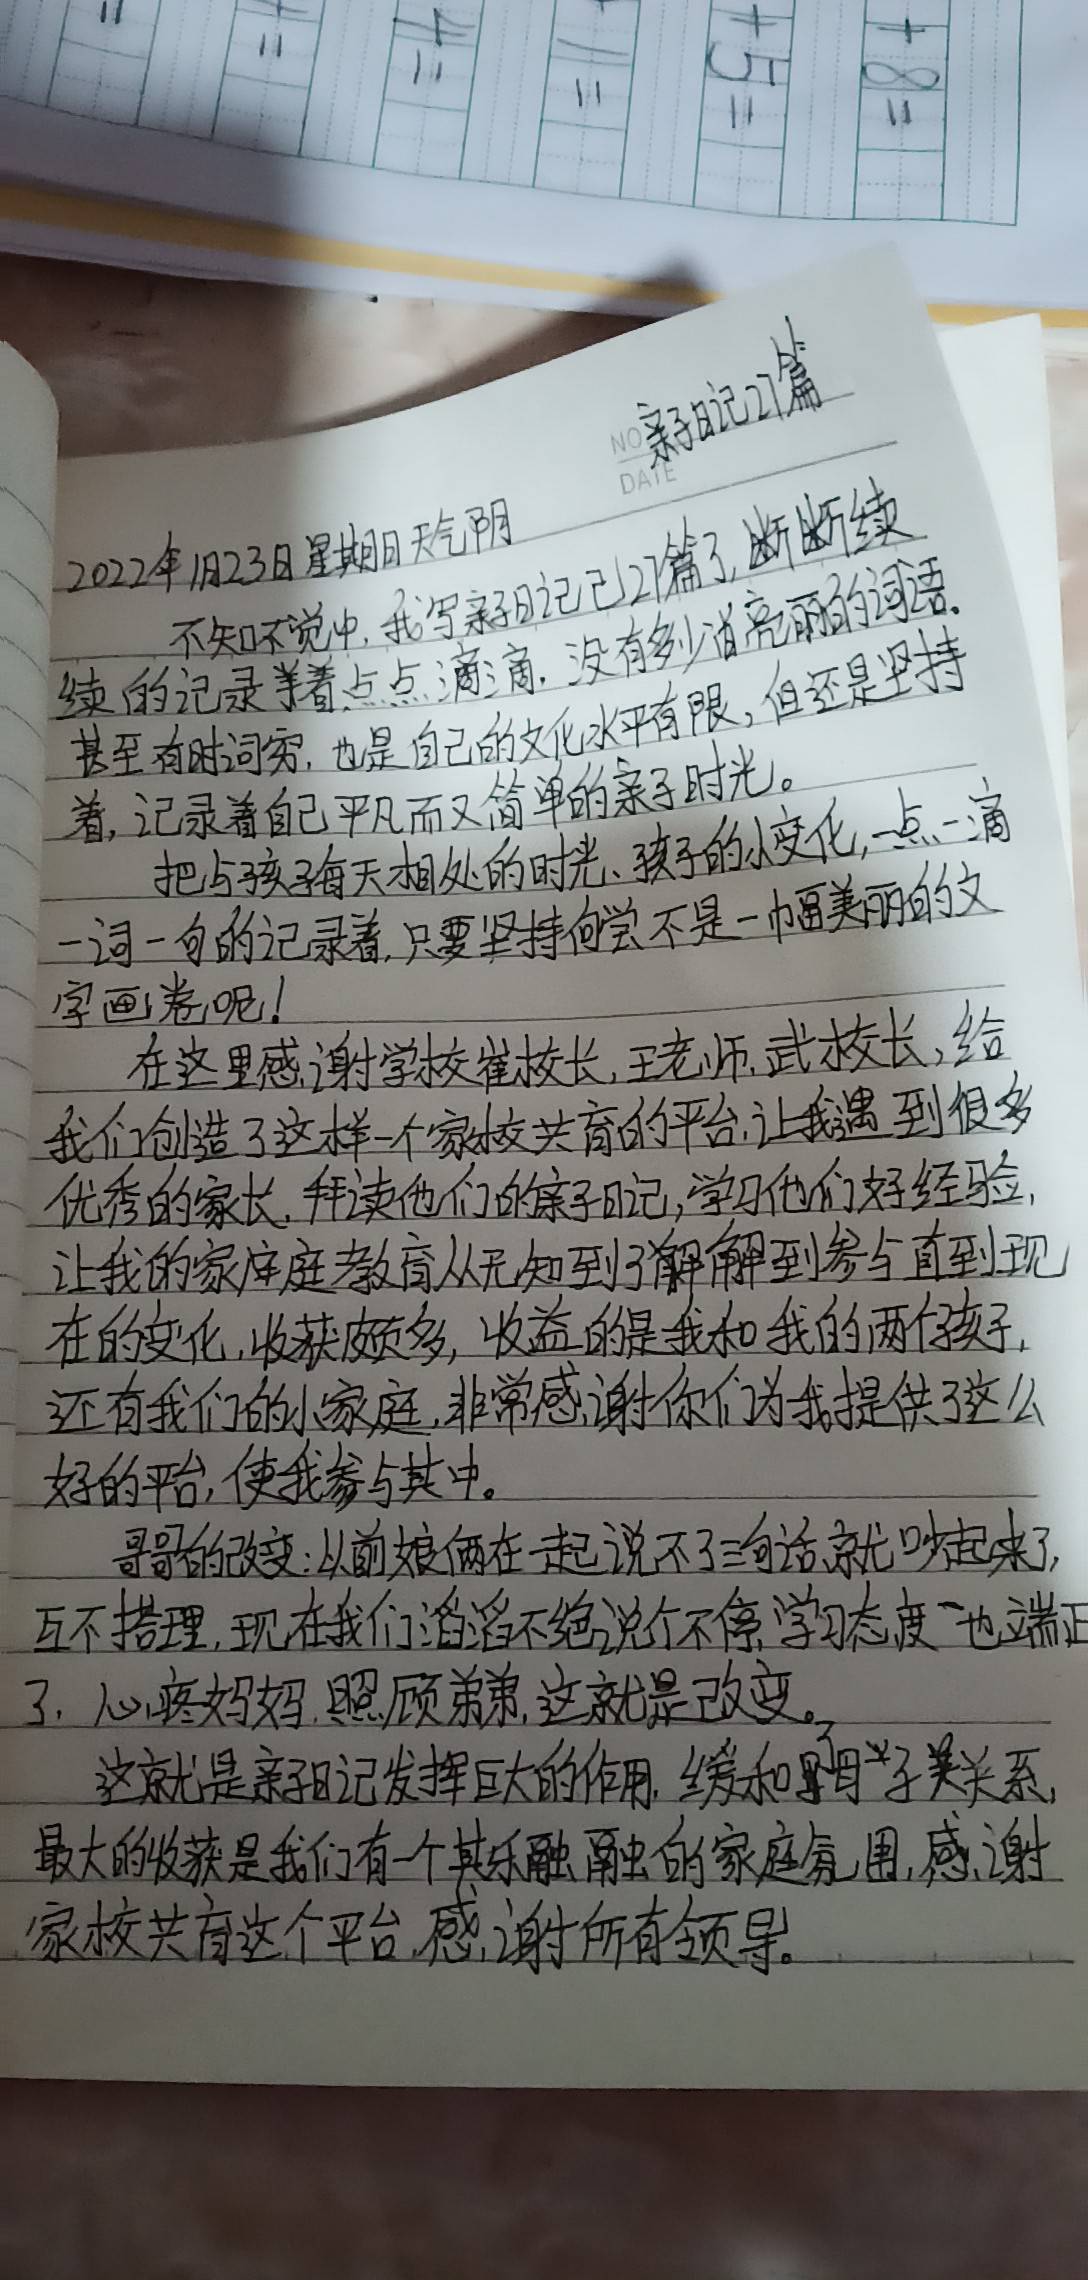 +8=
+5=
=
4=
=
NO 亲子日记27篇
DATE
2022年1月23日星期日天气阴
不知不觉中,我写亲子日记已27篇了,断断续
续的记录着点点滴滴,没有多少消亮丽的词语,
甚至有时词穷,也是自己的文化水平有限,但还是坚持
着,记录着自己平凡而又简单的亲子时光。
把与孩子每天相处的时光、孩子的小变化,一点一滴
一词一句的记录着,只要坚持何尝不是一幅美丽的文
字画卷呢!
在这里感谢学校崔校长,王老师,武校长,给
我们创造了这样一个家校共育的平台,让我遇到很多
优秀的家长,拜读他们的亲子日记,学习他们好经验,
让我的家庭教育从无知到了解到参与直到现
在的变化,收获颇多,收益的是我和我的两个孩子,
还有我们的小家庭,非常感谢你们为我提供了这么
好的平台,使我参与其中。
哥哥的改变:以前娘俩在一起说不了三句话就吵起来了,
互不搭理,现在我们滔滔不绝说个不停,学习态度也端正
了,心疼妈妈,照顾弟弟,这就是改变。
这就是亲子日记发挥巨大的作用,缓和了母子关系,
最大的收获是我们有一个其乐融融的家庭氛围,感谢
家校共育这个平台,感谢所有领导。